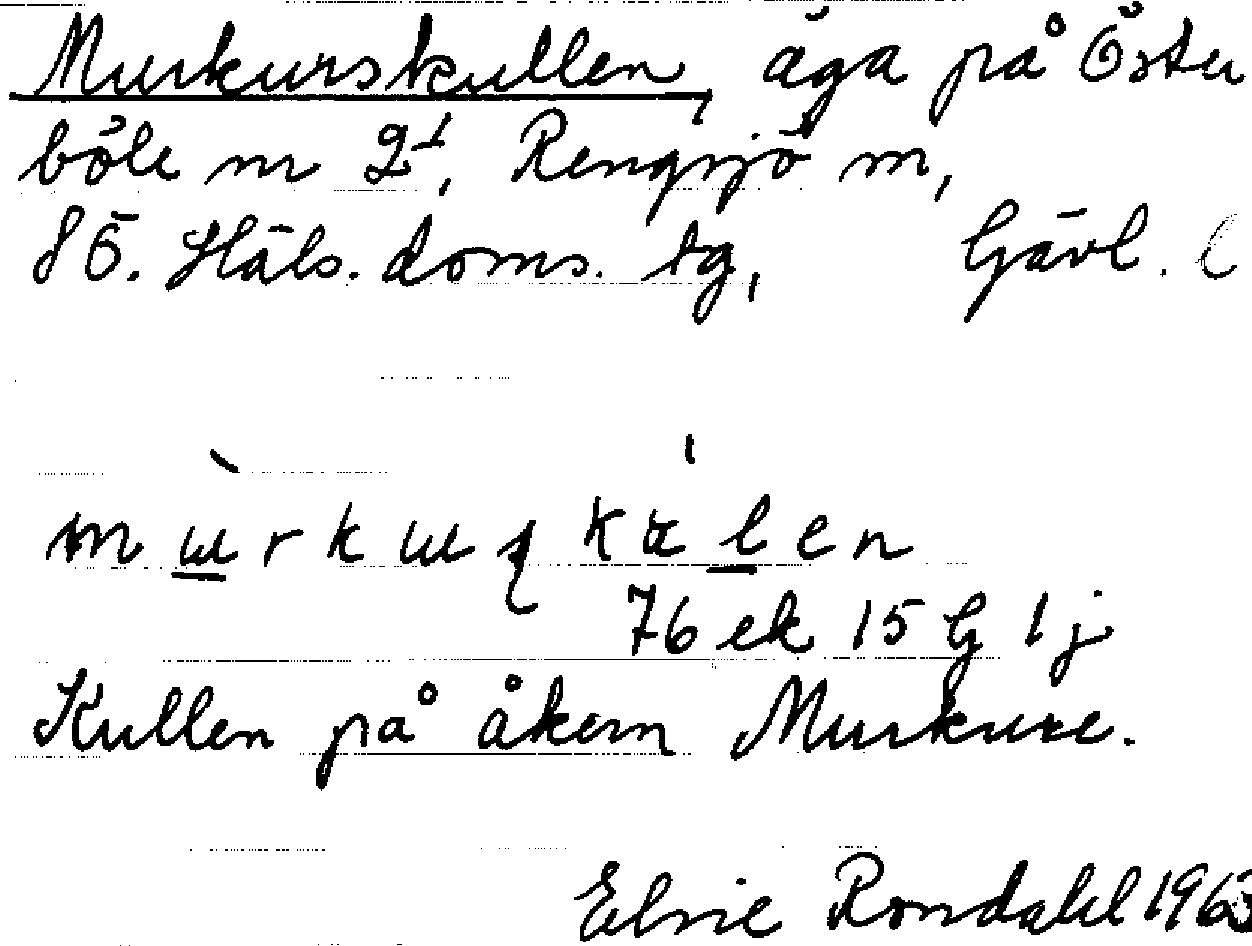 Murkurskullen, äga på Öster
böle nr 2¹, Rengsjö sn,
SÖ. Häls. doms. tg, Gävl. l
mɯrkɯʂkɯlen
76 ek 15 G 1 j
Kullen på åkern Murkure.
Elsie Rondahl 1963